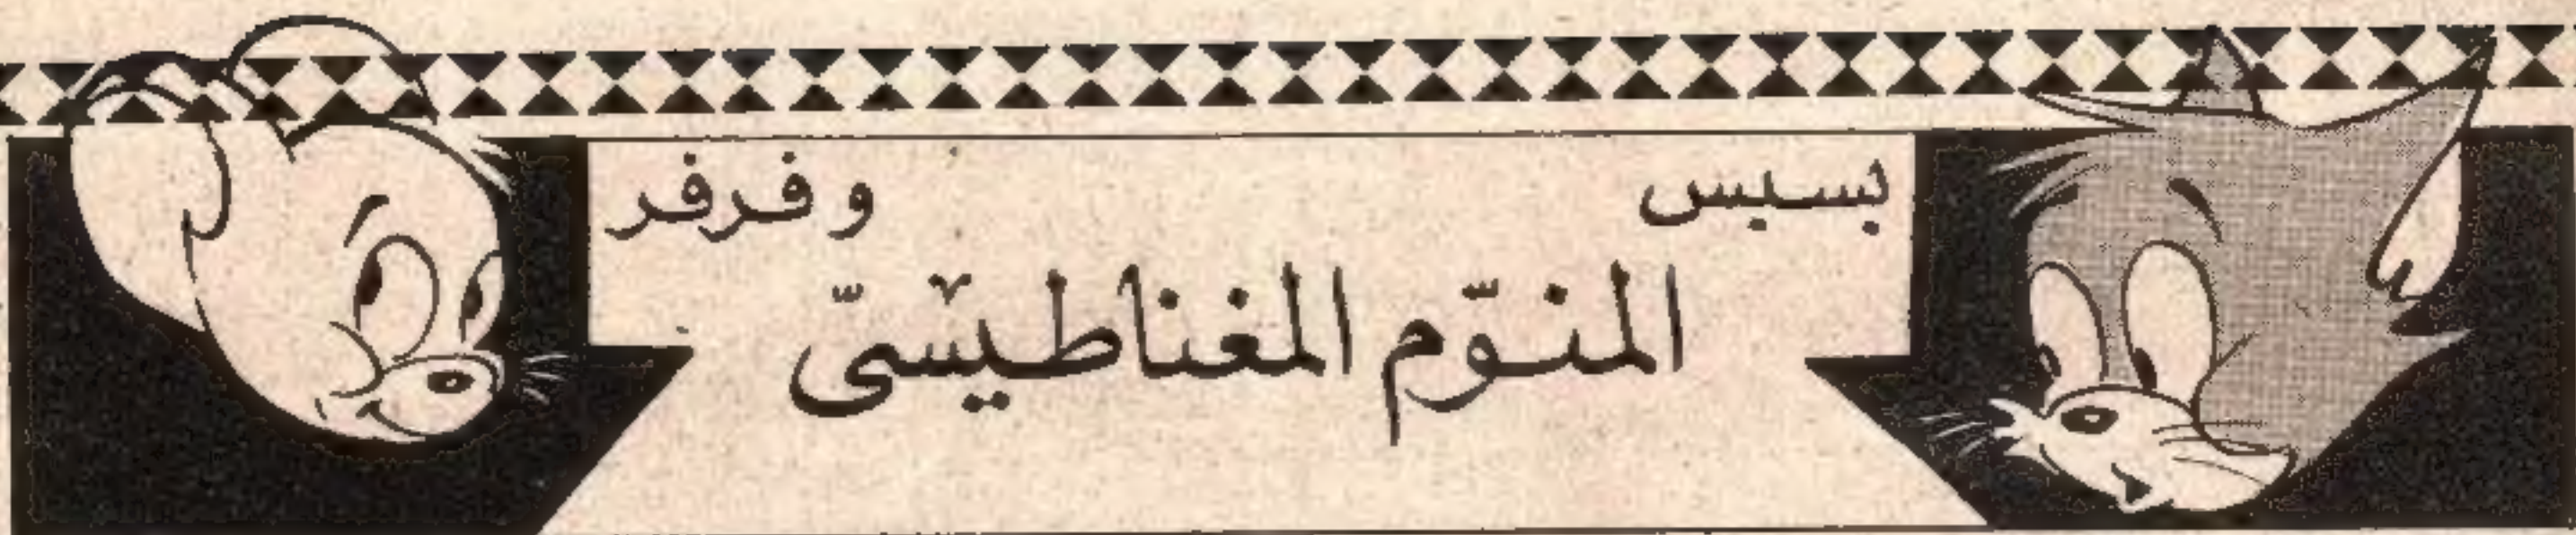 بسبس وفرفر
المنوّم المغناطيسيّ